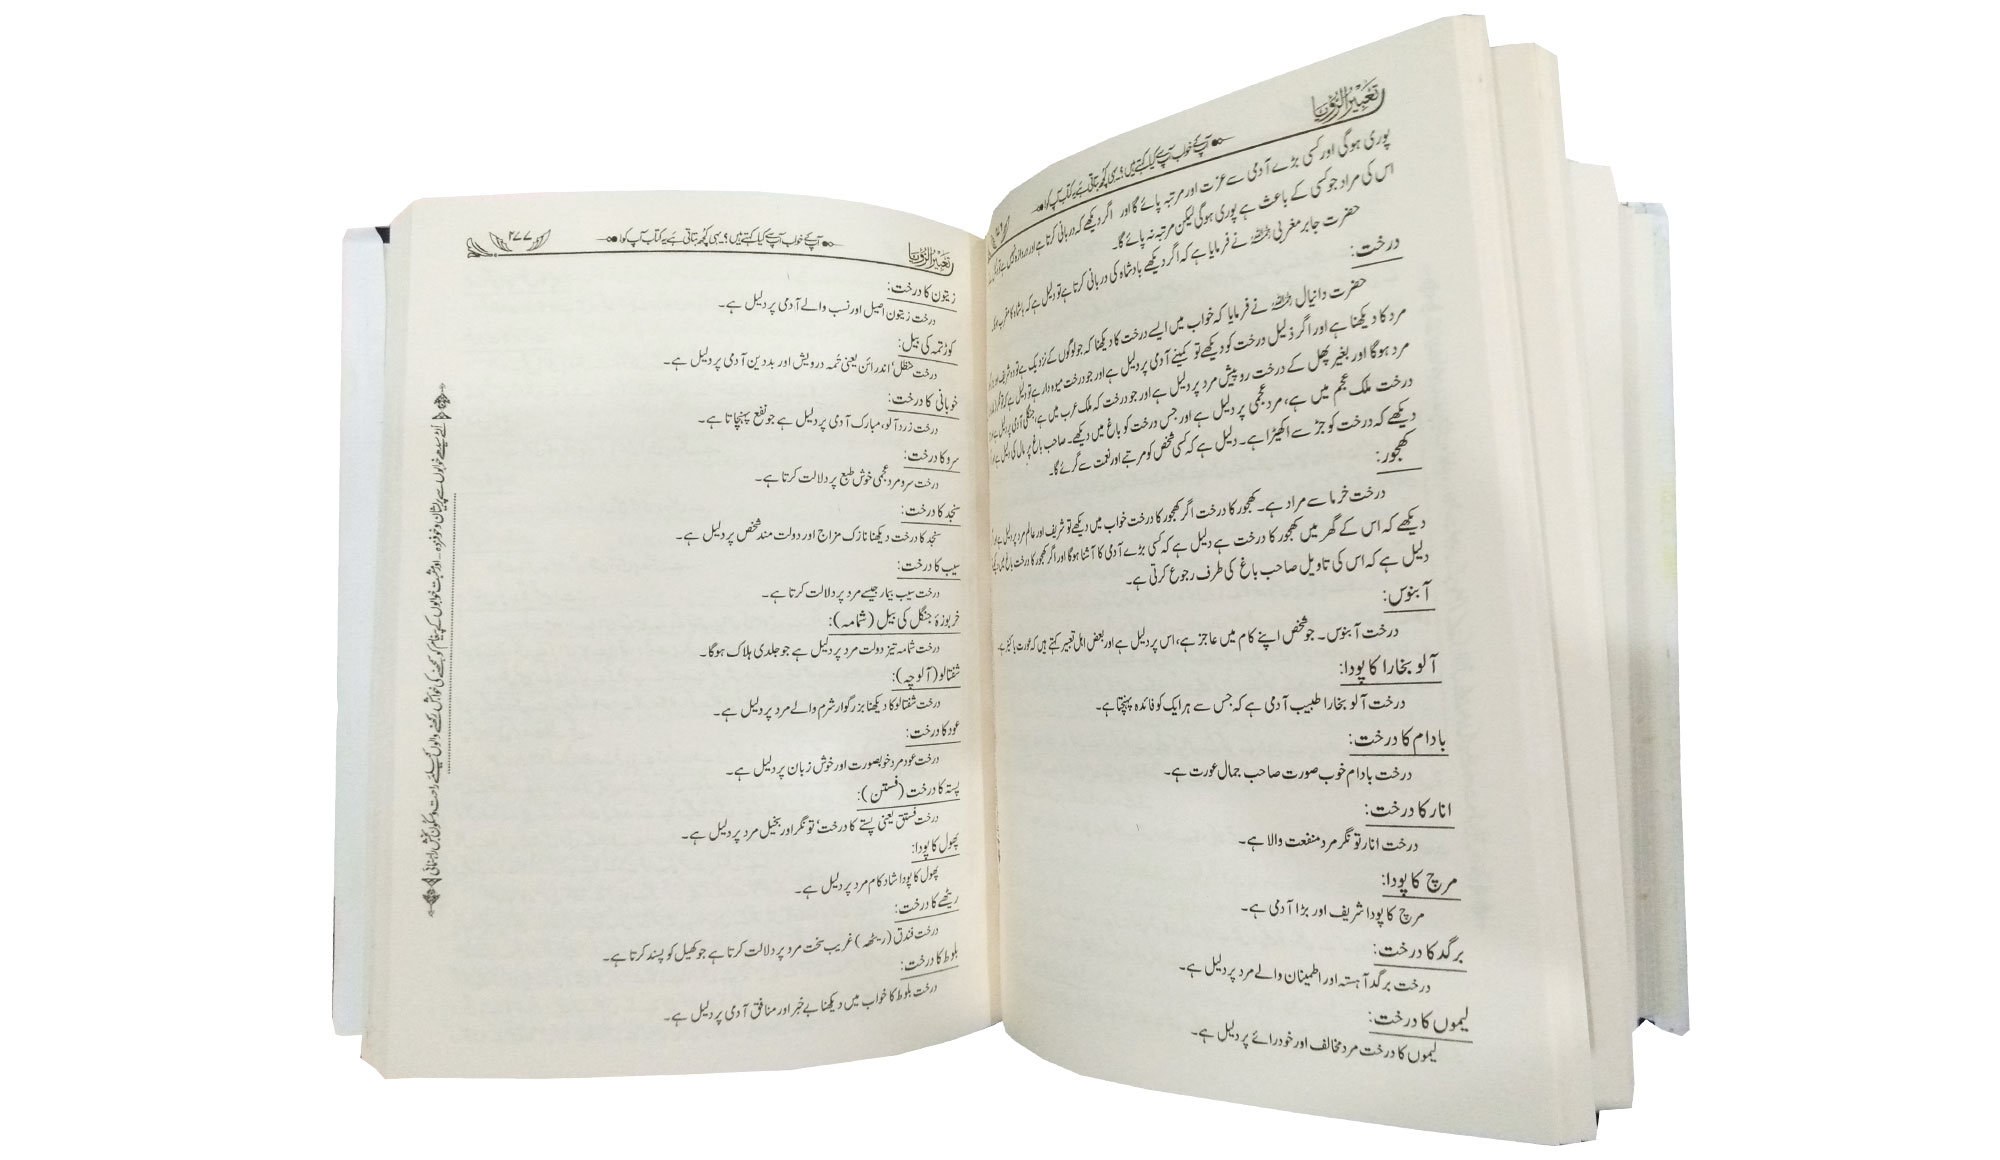 تعبیر الرؤیا
آپ کے خواب آپ سے کیا کہتے ہیں؟ یہی کچھ بتاتی ہے یہ کتاب آپ کو!
پوری ہوگی اور کسی بڑے آدمی سے عزت اور مرتبہ پائے گا اور اگر دیکھے کہ دربانی کرتا ہے اور دروازہ
اس کی مراد جو کسی کے باعث ہے پوری ہوگی لیکن مرتبہ نہ پائے گا۔
حضرت جابر مغربی نے فرمایا ہے کہ اگر دیکھے بادشاہ کی دربانی کرتا ہے تو دلیل ہے کہ بادشاہ کا مقرب ہوگا۔
درخت:
حضرت دانیال نے فرمایا کہ خواب میں ایسے درخت کا دیکھنا کہ جو لوگوں کے نزدیک ہے تو وہ شریف اور
مرد کا دیکھنا ہے اور اگر ذلیل درخت کو دیکھے تو کمینے آدمی پر دلیل ہے اور جو درخت میوہ دار ہے تو دلیل ہے کہ
مرد ہوگا اور بغیر پھل کے درخت درویش مرد پر دلیل ہے اور جو درخت کہ ملک عرب میں ہے، جنگلی آدمی پر دلیل ہے اور
درخت ملک عجم میں ہے، مرد عجمی پر دلیل ہے اور جس درخت کو باغ میں دیکھے۔ صاحب باغ پر مال کی دلیل ہے اور
دیکھے کہ درخت کو جڑ سے اکھیڑا ہے۔ دلیل ہے کہ کسی شخص کو مرتبے اور نعمت سے گرائے گا۔
کھجور:
درخت خرما سے مراد ہے۔ کھجور کا درخت اگر کھجور کا درخت خواب میں دیکھے تو شریف اور عالم مرد پر دلیل ہے اور
دیکھے کہ اس کے گھر میں کھجور کا درخت ہے دلیل ہے کہ کسی بڑے آدمی کا آشنا ہوگا اور اگر کھجور کا درخت باغ میں دیکھے
دلیل ہے کہ اس کی تاویل صاحب باغ کی طرف رجوع کرتی ہے۔
آبنوس:
درخت آبنوس۔ جو شخص اپنے کام میں عاجز ہے، اس پر دلیل ہے اور بعض اہل تعبیر کہتے ہیں کہ عورت پاکیزہ ہے۔
آلو بخارا کا پودا:
درخت آلو بخارا طبیب آدمی ہے کہ جس سے ہر ایک کو فائدہ پہنچتا ہے۔
بادام کا درخت:
درخت بادام خوب صورت صاحب جمال عورت ہے۔
انار کا درخت:
درخت انار تونگر مرد منفعت والا ہے۔
مرچ کا پودا:
مرچ کا پودا شریف اور بڑا آدمی ہے۔
برگد کا درخت:
درخت برگد آہستہ اور اطمینان والے مرد پر دلیل ہے۔
لیموں کا درخت:
لیموں کا درخت مرد مخالف اور خود رائے پر دلیل ہے۔
تعبیر الرؤیا
آپ کے خواب آپ سے کیا کہتے ہیں؟ یہی کچھ بتاتی ہے یہ کتاب آپ کو!
۲۷۷
زیتون کا درخت:
درخت زیتون اصیل اور نسب والے آدمی پر دلیل ہے۔
کوڑتمہ کی بیل:
درخت حنظل، اندرائن یعنی تُمہ درویش اور بددین آدمی پر دلیل ہے۔
خوبانی کا درخت:
درخت زرد آلو، مبارک آدمی پر دلیل ہے جو نفع پہنچاتا ہے۔
سرو کا درخت:
درخت سرو مرد عجمی خوش طبع پر دلالت کرتا ہے۔
سنجد کا درخت:
سنجد کا درخت دیکھنا نازک مزاج اور دولت مند شخص پر دلیل ہے۔
سیب کا درخت:
درخت سیب بیمار جیسے مرد پر دلالت کرتا ہے۔
خربوزۂ جنگل کی بیل (شمامہ):
درخت شمامہ تیز دولت مرد پر دلیل ہے جو جلدی ہلاک ہوگا۔
شفتالو (آلوچہ):
درخت شفتالو کا دیکھنا بزرگوار شرم والے مرد پر دلیل ہے۔
عود کا درخت:
درخت عود مرد خوبصورت اور خوش زبان پر دلیل ہے۔
پستہ کا درخت (فستق):
درخت فستق یعنی پستے کا درخت، تونگر اور بخیل مرد پر دلیل ہے۔
پھول کا پودا:
پھول کا پودا شاد کام مرد پر دلیل ہے۔
ریٹھے کا درخت:
درخت فندق (ریٹھہ) غریب سخت مرد پر دلالت کرتا ہے جو کھیل کو پسند کرتا ہے۔
بلوط کا درخت:
درخت بلوط کا خواب میں دیکھنا بے خبر اور منافق آدمی پر دلیل ہے۔
الٹے سیدھے خوابوں سے پریشان و خوفزدہ - اور مثبت خوابوں کے پیغام کو سمجھنے کی خواہش رکھنے والوں کیلئے راحت و سکون بخش راہنمائی